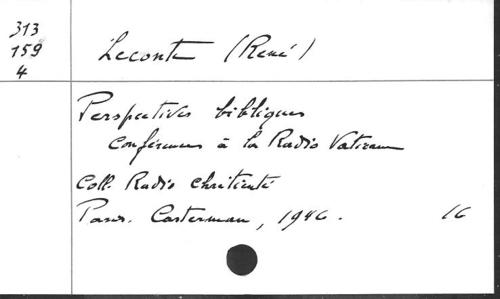 313
159
4
Leconte (René)
Perspectives bibliques
Conférences à la Radio Vaticane
Coll. Radio Chrétienté
Paris. Casterman, 1946. 16